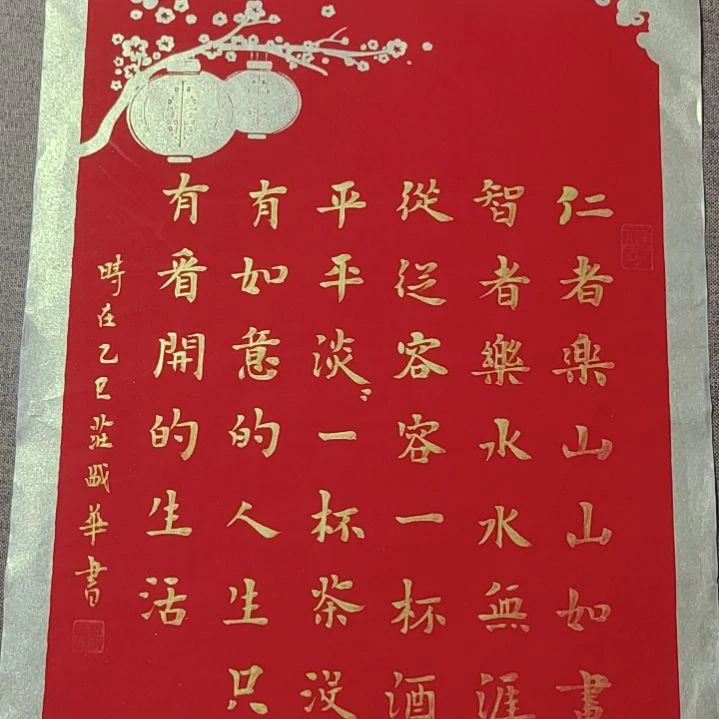 仁者楽山山如畫
智者樂水水無涯
從従容容一杯酒
平平淡〻一杯茶沒
有如意的人生只
有看開的生活
時在乙巳莊華書